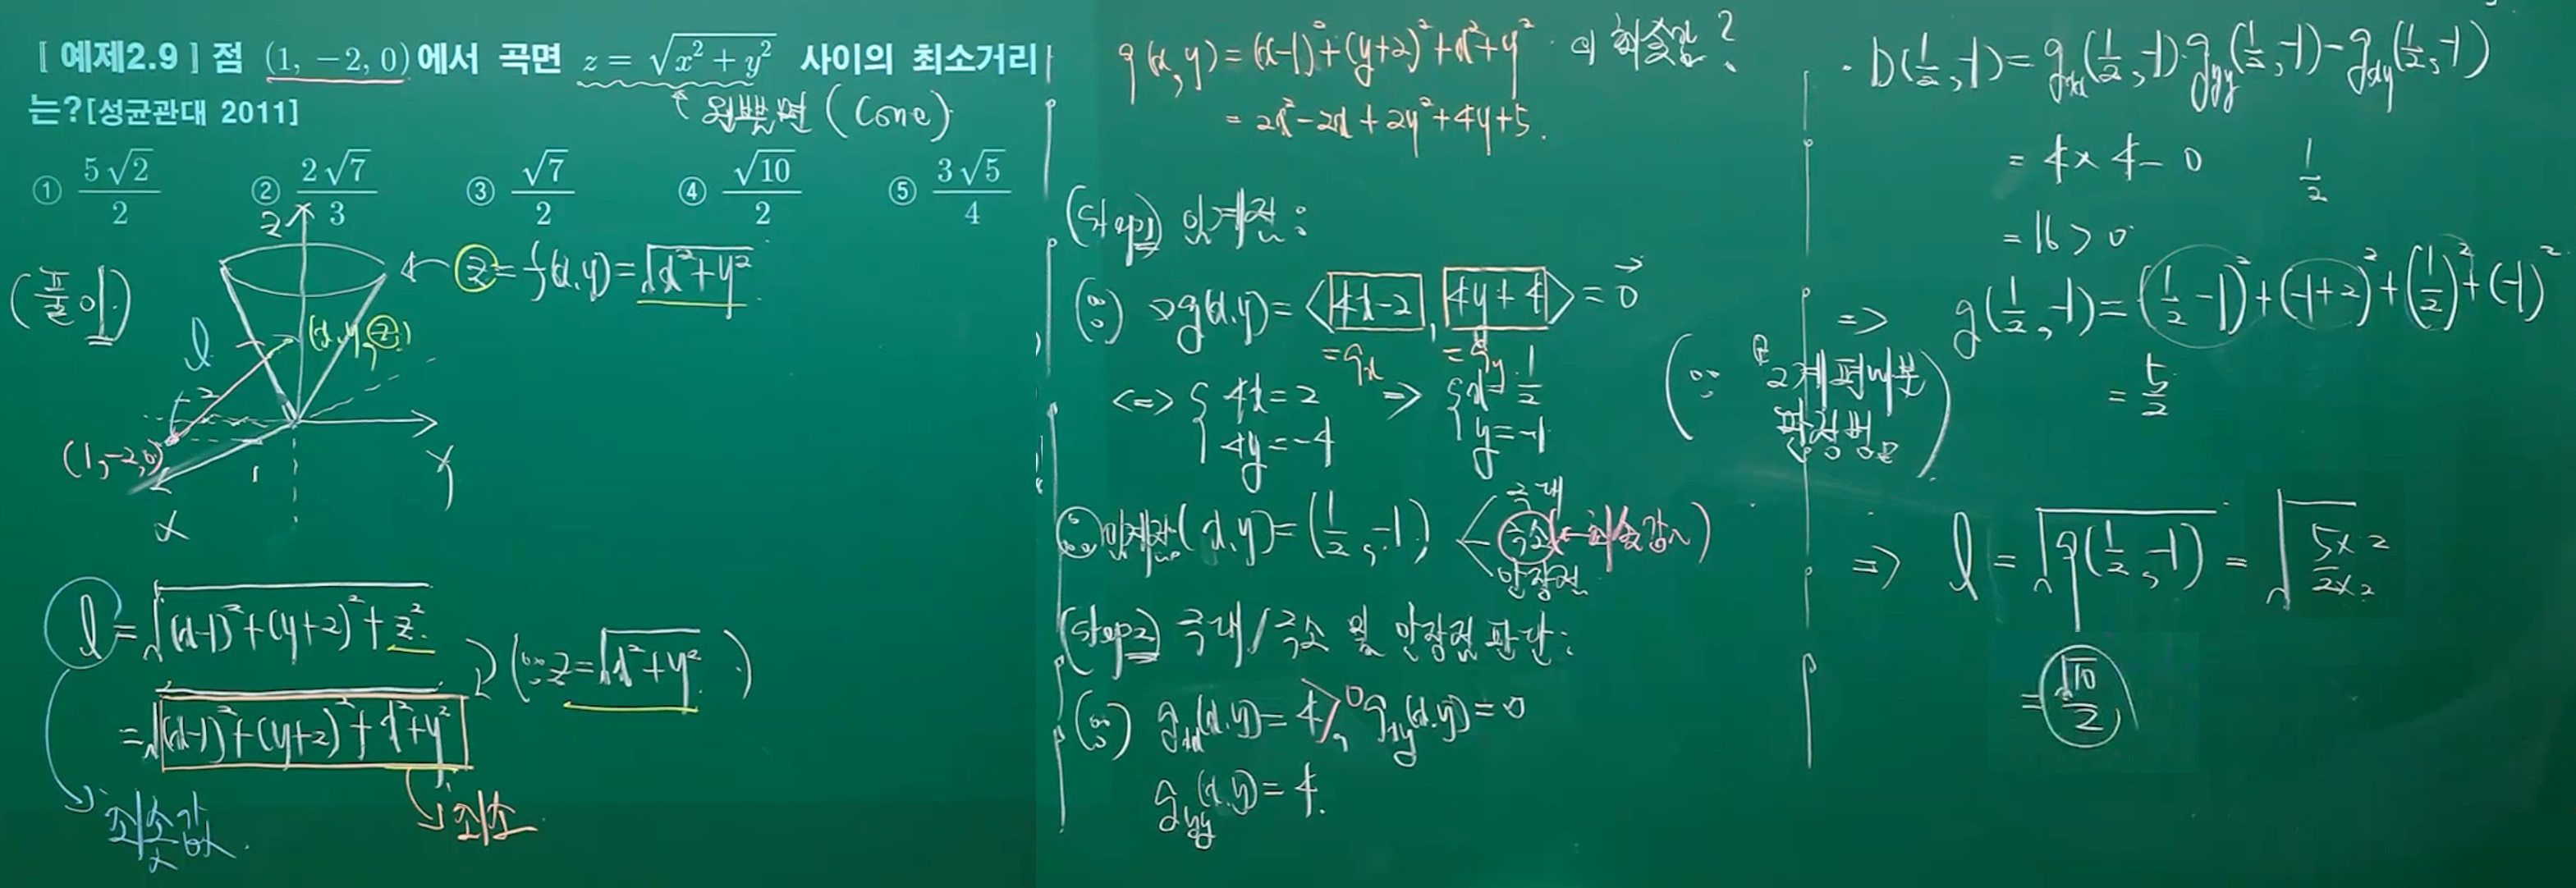 [ 예제2.9 ] 점 (1, −2, 0)에서 곡면 z = √(x² + y²) 사이의 최소거리
는?[성균관대 2011]
↑ 원뿔면 (Cone)
① 5√2/2 ② 2√7/3 ③ √7/2 ④ √10/2 ⑤ 3√5/4
(풀이)
z
← z = f(x,y) = √(x²+y²)
l
(x,y,z)
-2
(1,-2,0)
1
y
x
l = √((x-1)²+(y+2)²+z²)
= √((x-1)²+(y+2)²+x²+y²) (∵ z=√(x²+y²))
최소값
최소
g(x,y) = (x-1)²+(y+2)²+x²+y² 의 최솟값?
= 2x²-2x+2y²+4y+5.
(step1) 임계점:
(∵) ∇g(x,y) = <4x-2, 4y+4> = 0⃗
=gx =gy
<=> { 4x=2 => { x=1/2
4y=-4 y=-1
∴ 임계점 (x,y) = (1/2, -1)
극대
극소 (← 최솟값)
안장점
(step2) 극대/극소 및 안장점 판단:
(∵) gxx(x,y) = 4 > 0, gxy(x,y) = 0
gyy(x,y) = 4.
· D(1/2, -1) = gxx(1/2, -1)·gyy(1/2, -1) - gxy²(1/2, -1)
= 4 x 4 - 0
1/2
= 16 > 0
=> g(1/2, -1) = (1/2 - 1)² + (-1+2)² + (1/2)² + (-1)²
(∵ 2계편미분
판정법)
= 5/2
=> l = √g(1/2, -1) = √(5x2/2x2)
= √10/2